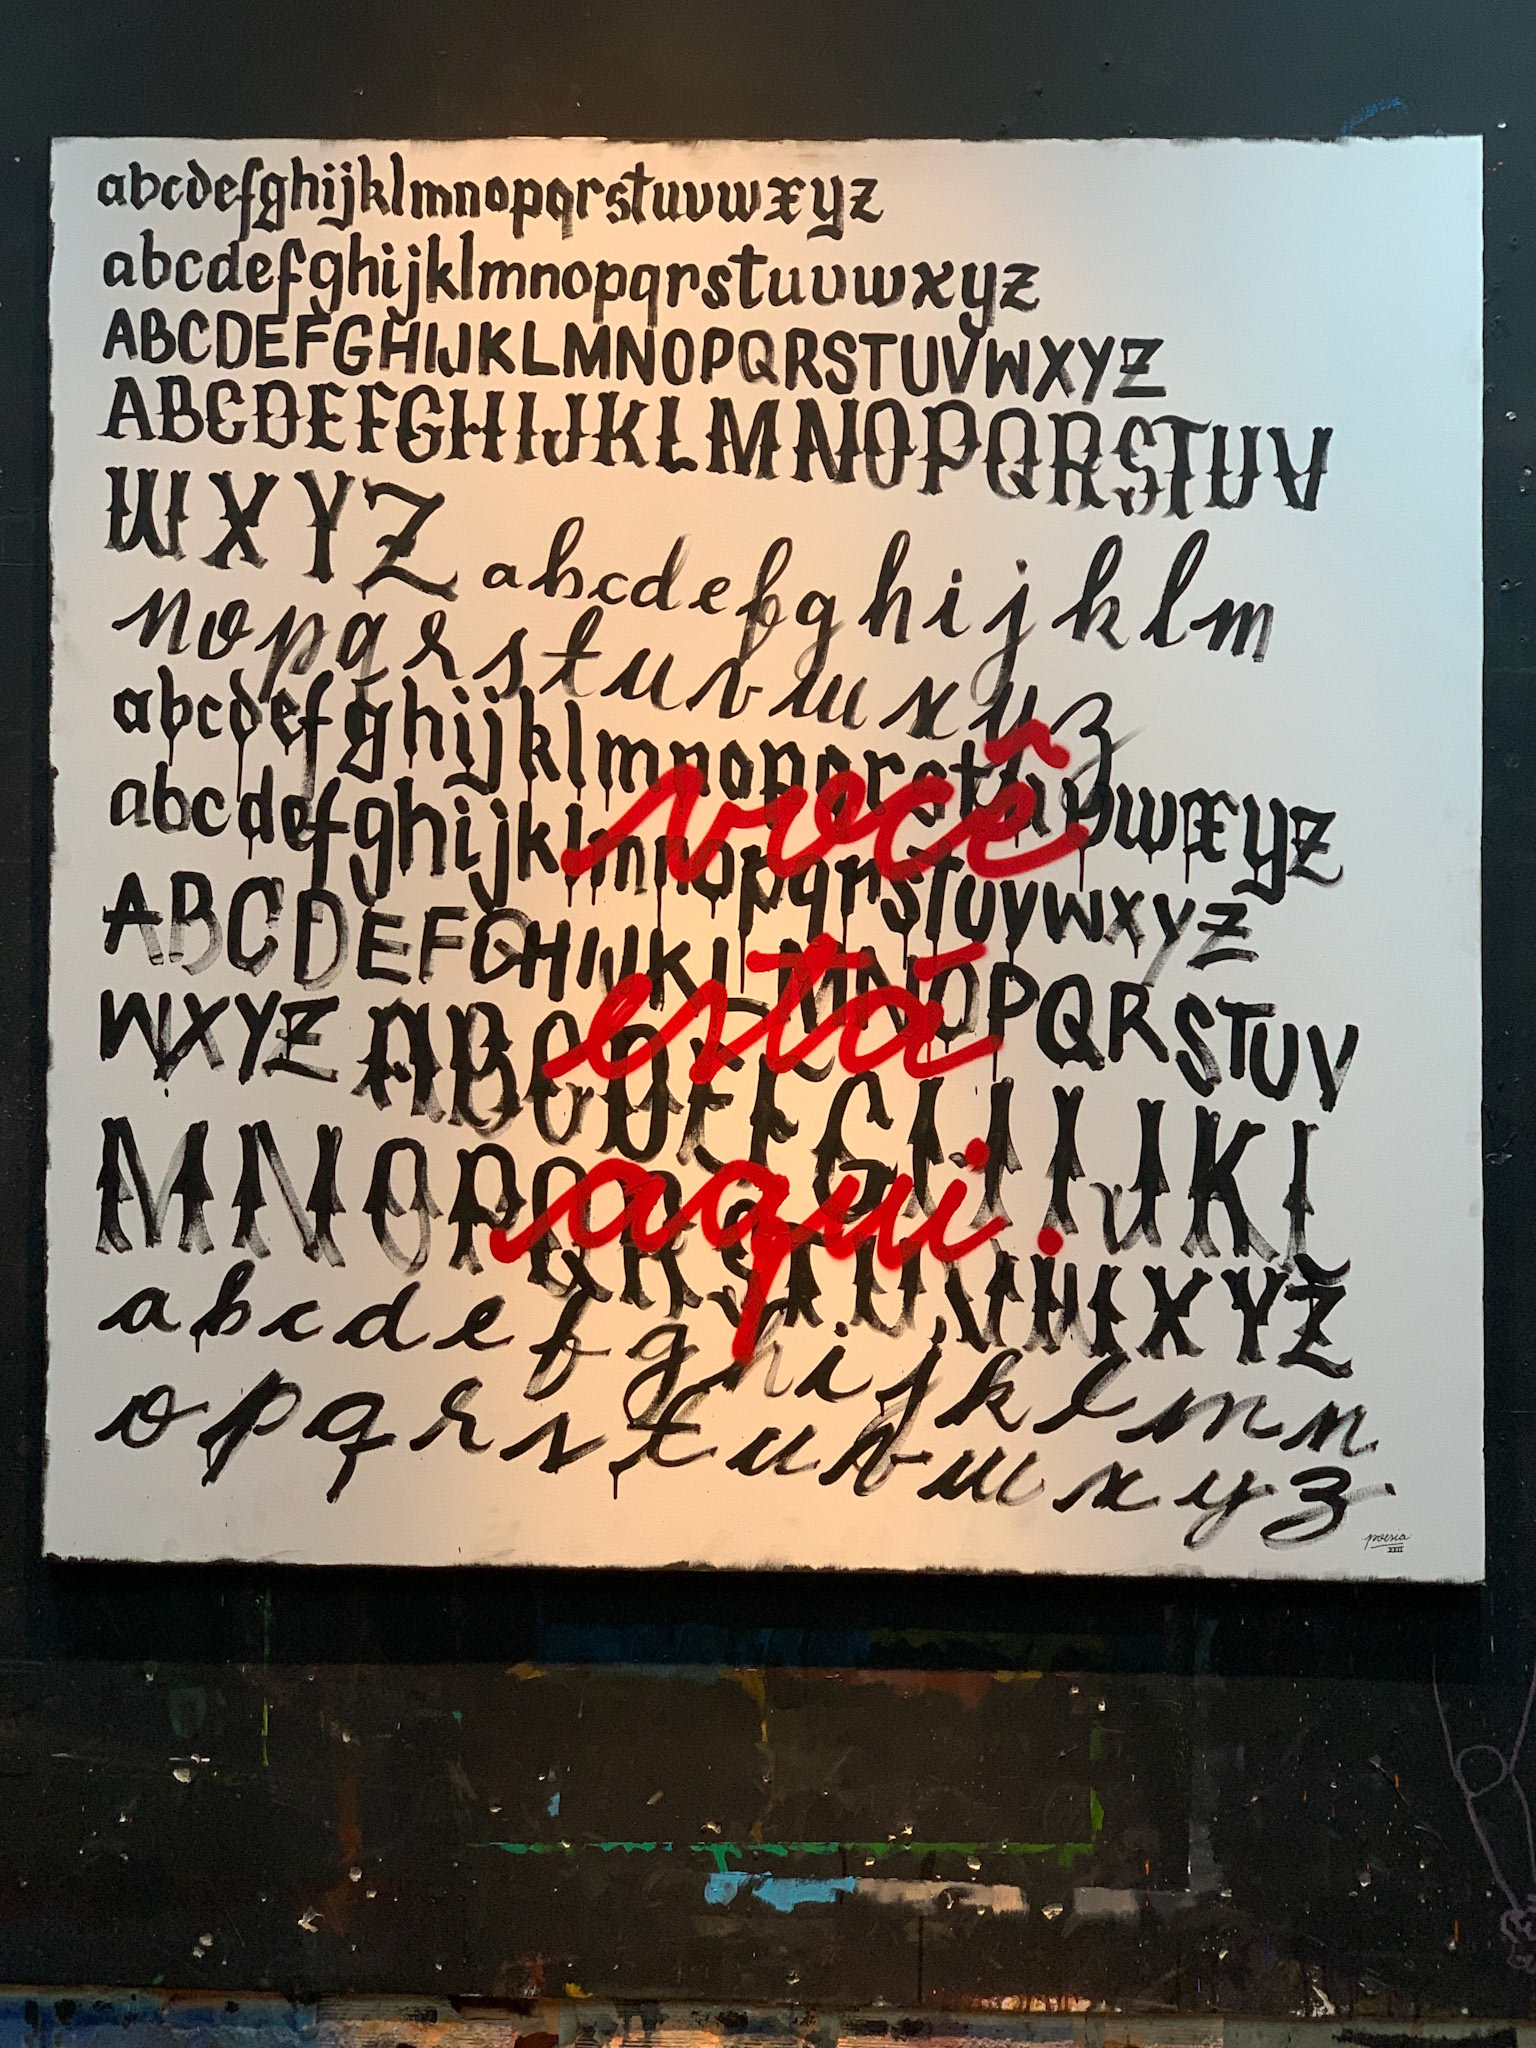 abcdefghijklmnopqrstuvwxyz
abcdefghijklmnopqrstuvwxyz
ABCDEFGHIJKLMNOPQRSTUVWXYZ
ABCDEFGHIJKLMNOPQRSTUV
WXYZ abcdefghijklm
nopqrstuvwxyz
abcdefghijklmnopqrstuvwxyz
você
abcdefghijklmnopqrstuvwxyz
ABCDEFGHIJKLMNOPQRSTUV
está
WXYZ ABCDEFGHIJKL
MNOPQRSTUVWXYZ
aqui.
abcdefghijklmn
opqrstuvwxyz
poesia
XXII